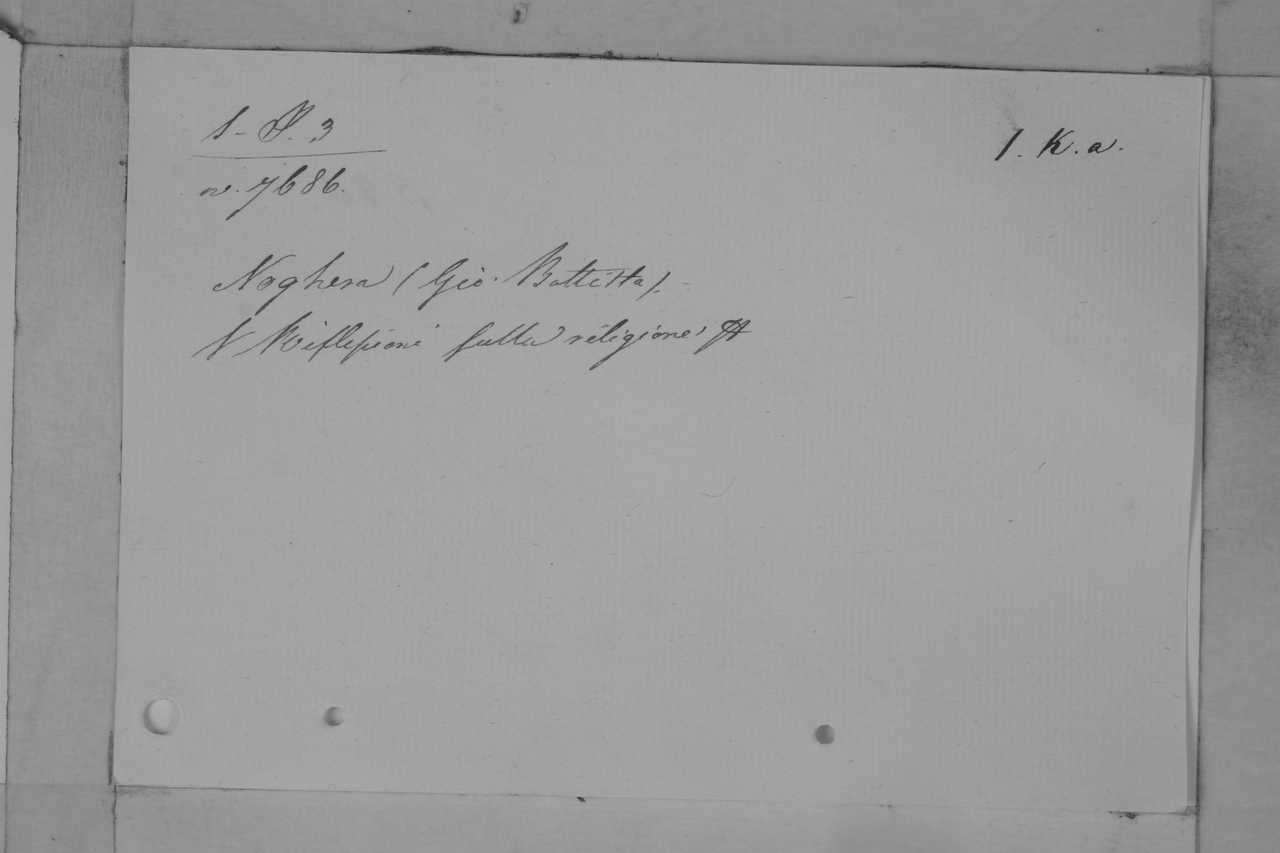 1. K. a.
n. 7686.
Noghera (Gio. Battista).
Riflessioni sulla religione